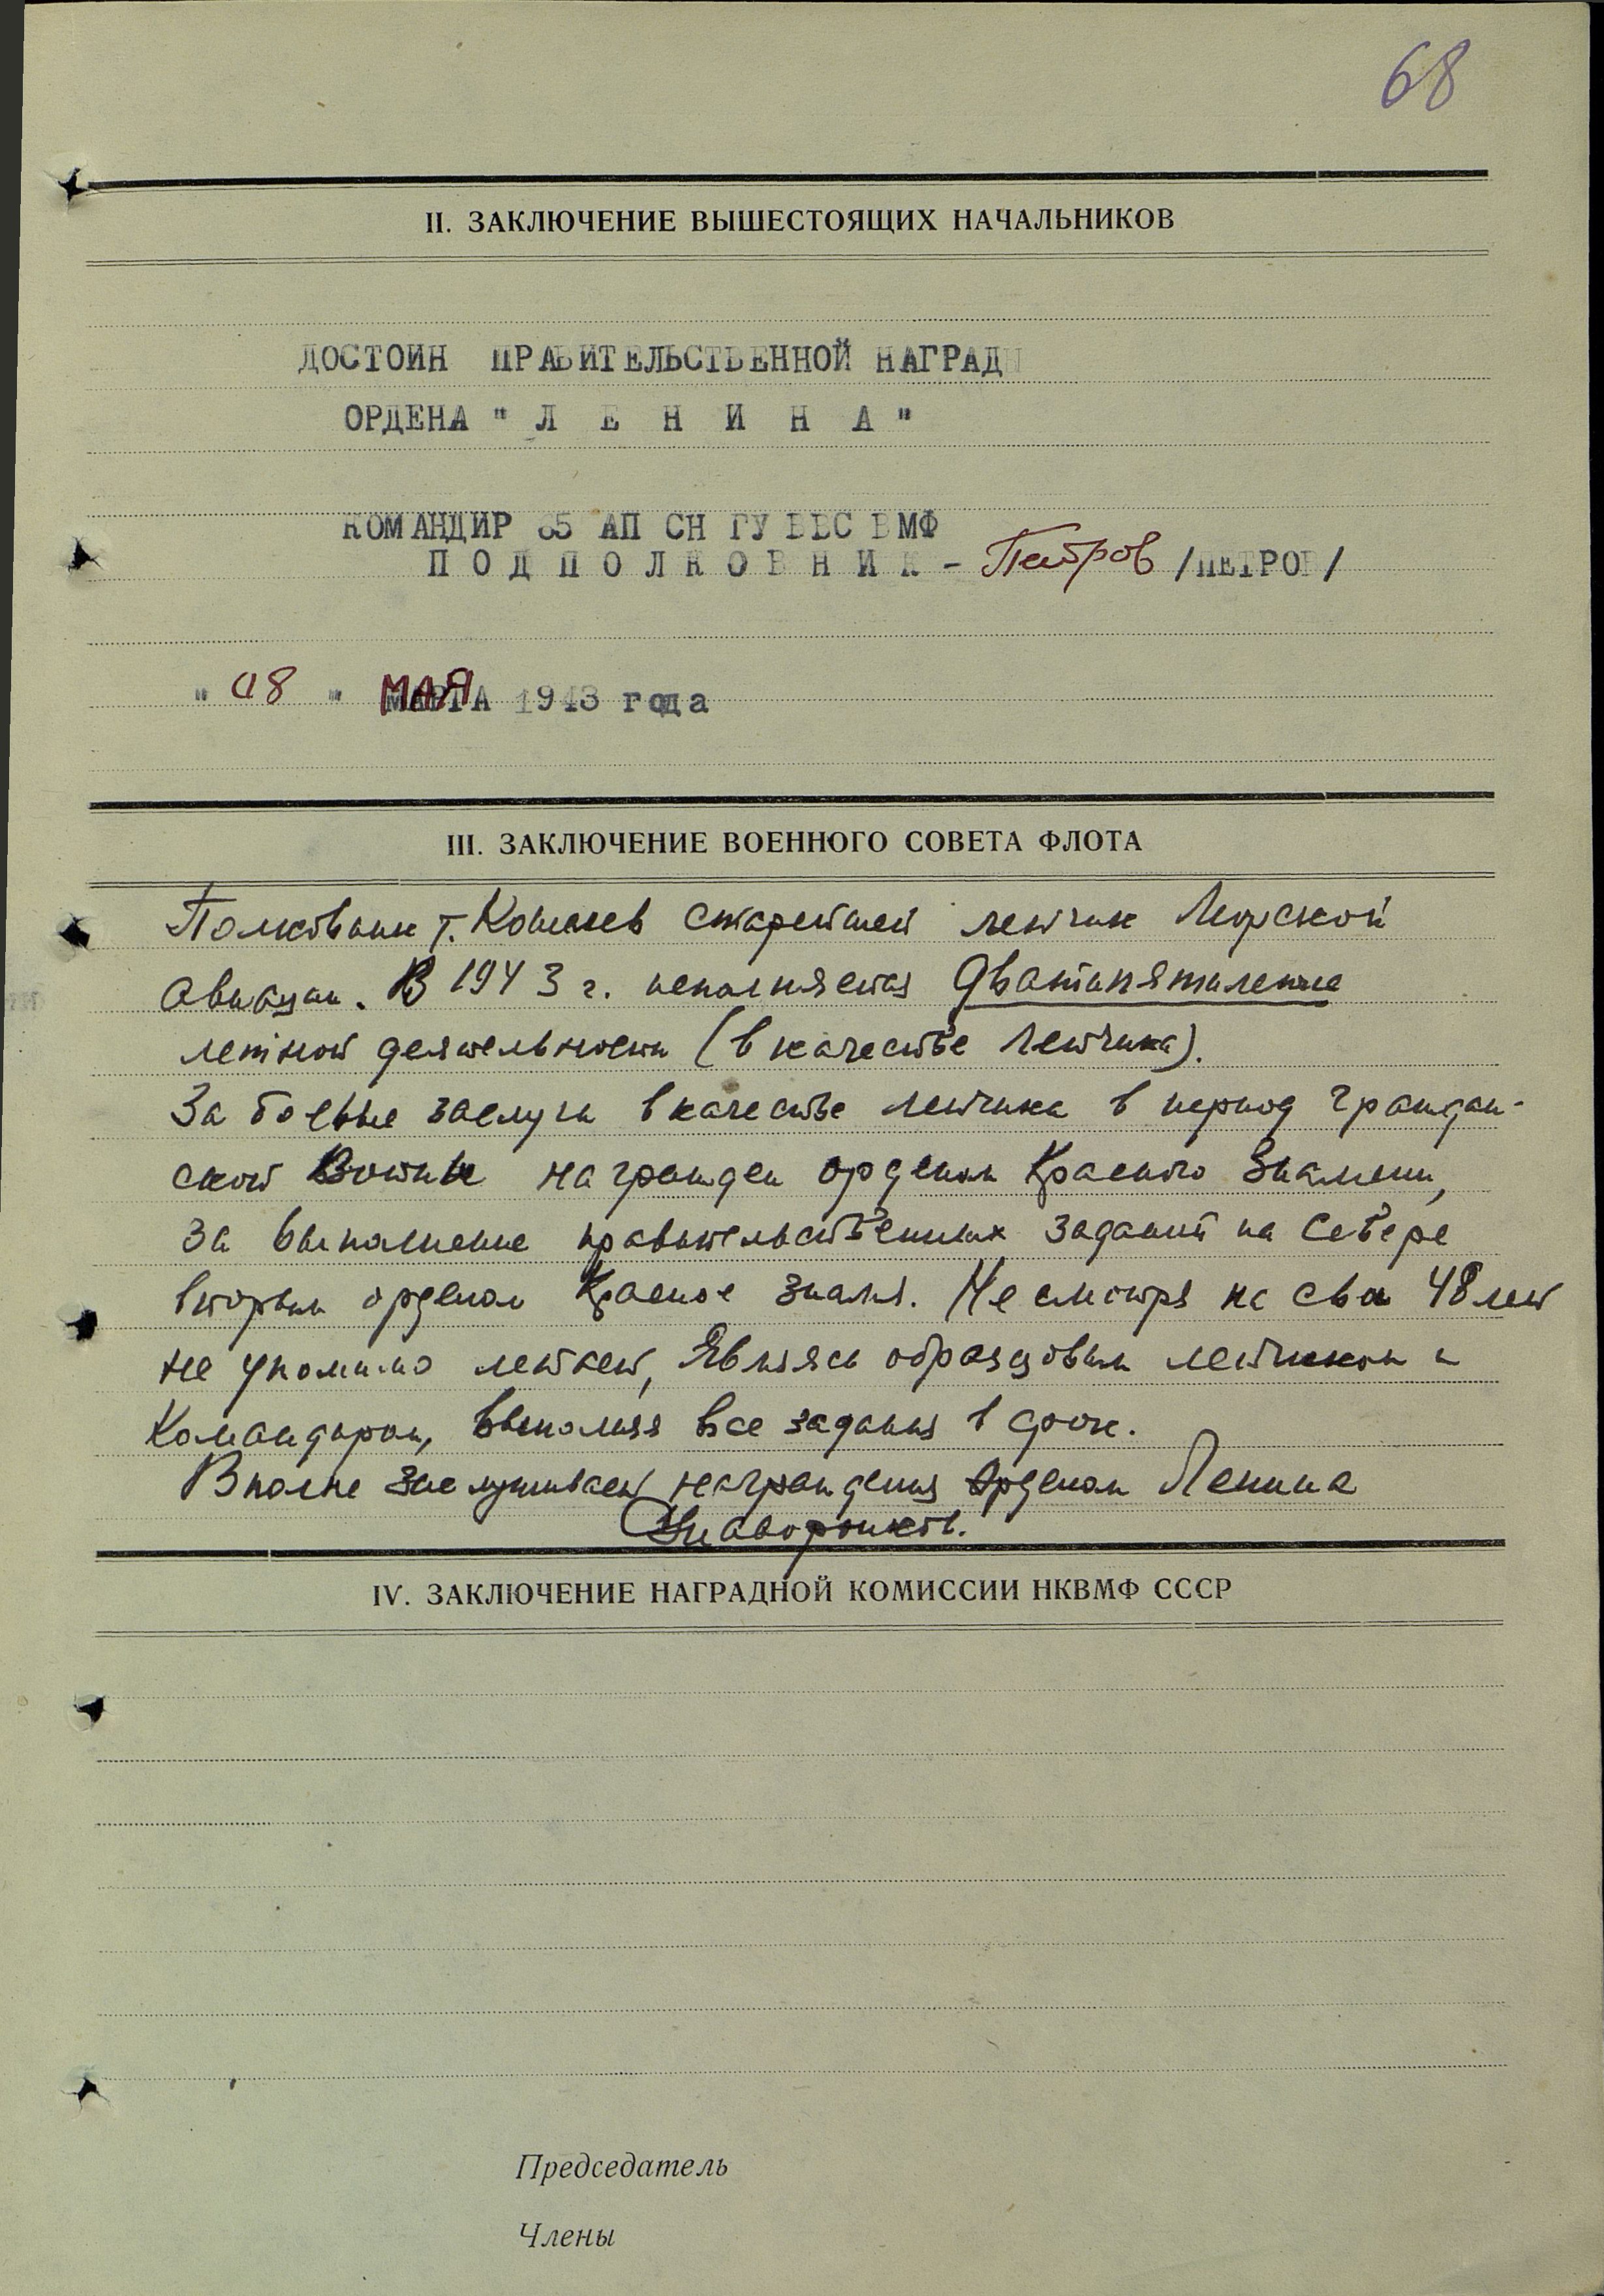 68
II. ЗАКЛЮЧЕНИЕ ВЫШЕСТОЯЩИХ НАЧАЛЬНИКОВ
ДОСТОИН ПРАВИТЕЛЬСТВЕННОЙ НАГРАДЫ
ОРДЕНА " Л Е Н И Н А "
КОМАНДИР 65 АП СН ГУ ВВС ВМФ
П О Д П О Л К О В Н И К - Петров /ПЕТРОВ/
" 08 " МАЯ 1943 года
III. ЗАКЛЮЧЕНИЕ ВОЕННОГО СОВЕТА ФЛОТА
Полковник т. Кошелев старейшей летчик Морской
авиации. В 1943 г. исполняется Дватипятилетие
летной деятельности (в качестве летчика).
За боевые заслуги в качестве летчика в период граждан-
ской Войны награжден орденом Красного Знамени,
за выполнение правительственных заданий на Севере
вторым орденом Красное знамя. Не смотря на свои 48 лет
не упомимо летает, Являясь образцовым летчиком и
Командиром, выполняя все задания в срок.
Вполне заслуживает награждения Орденом Ленина
Жаворонков.
IV. ЗАКЛЮЧЕНИЕ НАГРАДНОЙ КОМИССИИ НКВМФ СССР
Председатель
Члены